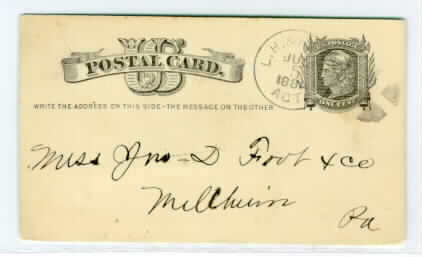 US
POSTAL CARD.
WRITE THE ADDRESS ON THIS SIDE - THE MESSAGE ON THE OTHER
JU
188
ACT
U.S. POSTAGE
ONE CENT
Mess Jno - D Foot & Co
Millheim
Pa